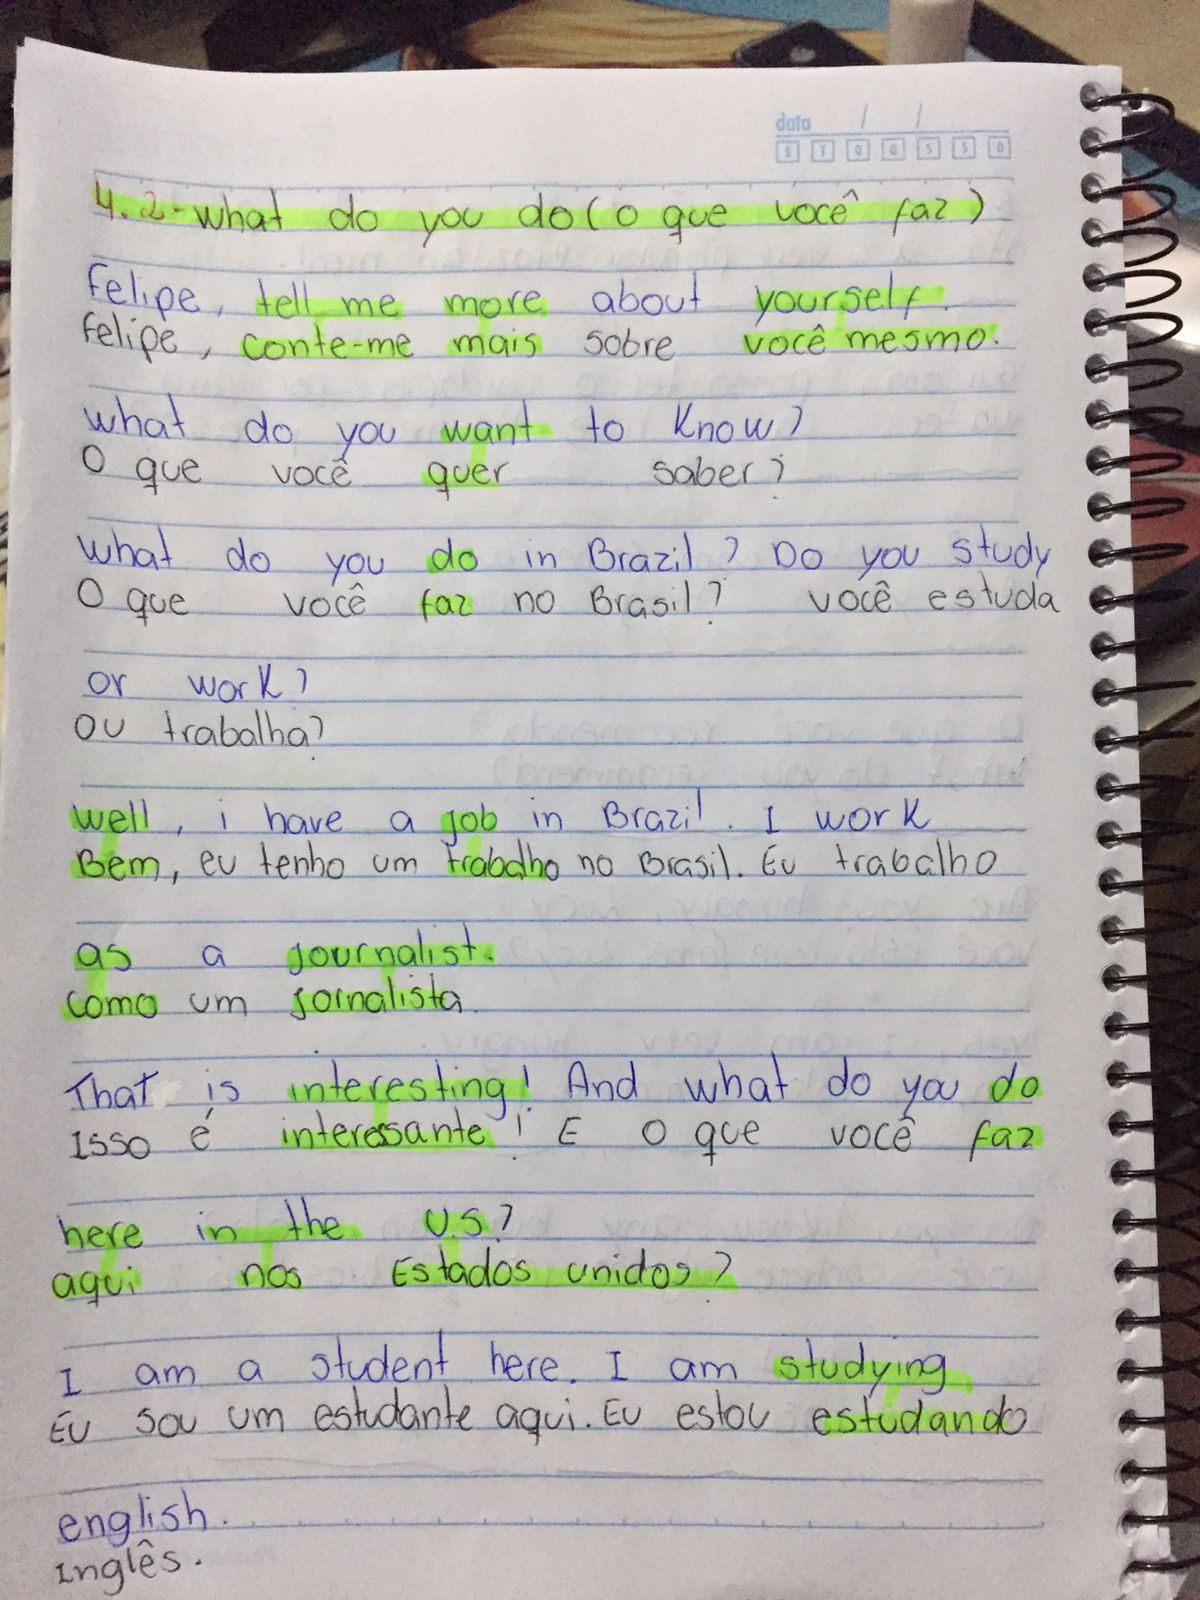 data / /
S T Q Q S S D
4.2-What do you do (O que você faz)
Felipe, tell me more about yourself.
Felipe, conte-me mais sobre você mesmo.
What do you want to know?
O que você quer saber?
What do you do in Brazil? Do you study
O que você faz no Brasil? você estuda
or work?
ou trabalha?
Well, i have a job in Brazil. I work
Bem, eu tenho um trabalho no Brasil. Eu trabalho
as a journalist.
como um jornalista.
That is interesting! And what do you do
Isso é interessante! E o que você faz
here in the U.S.?
aqui nos Estados unidos?
I am a student here. I am studying
Eu sou um estudante aqui. Eu estou estudando
english.
Inglês.